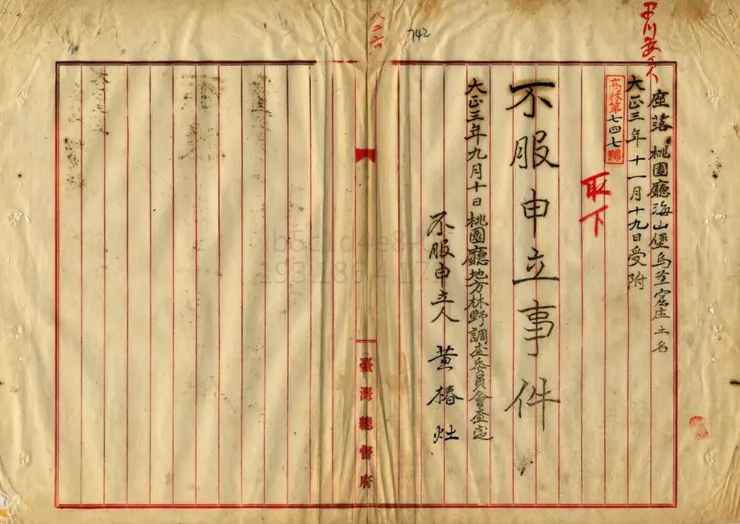 座落 桃園廳海山堡烏塗窟庄土名
大正三年十一月十九日受附
高林第七四七號
取下
不服申立事件
大正三年九月十日桃園廳地方林野調查委員會查定
不服申立人 黃椿灶
742
八二六
臺灣總督府